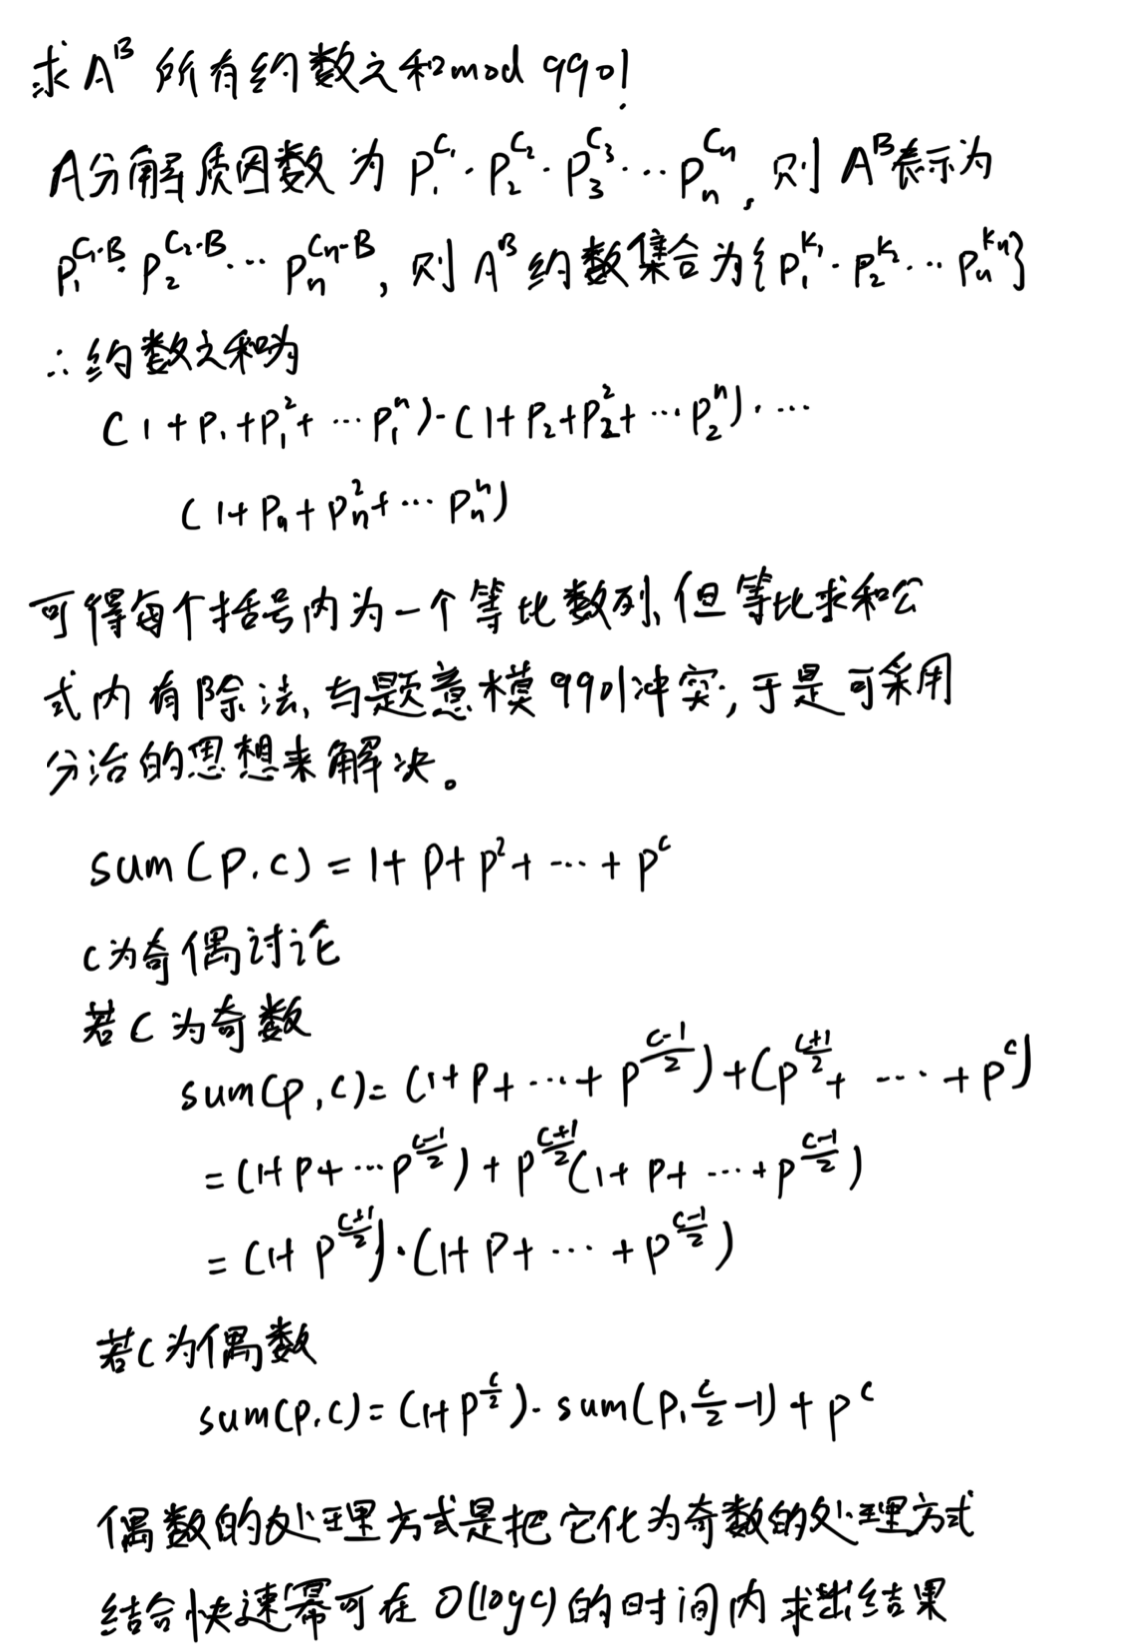 求 A^B 所有约数之和 mod 9901.
A分解质因数为 p_1^{C_1}·p_2^{C_2}·p_3^{C_3}···p_n^{C_n}, 则 A^B 表示为
p_1^{C_1·B}·p_2^{C_2·B}···p_n^{C_n·B}, 则 A^B 约数集合为{p_1^{k_1}·p_2^{k_2}···p_n^{k_n}}
∴约数之和为
(1+p_1+p_1^2+···p_1^n)·(1+p_2+p_2^2+···p_2^n)·...
(1+p_n+p_n^2+···p_n^n)
可得每个括号内为一个等比数列,但等比求和公
式内有除法,与题意模9901冲突,于是可采用
分治的思想来解决。
sum(p,c)=1+p+p^2+···+p^c
c为奇偶讨论
若c为奇数
sum(p,c)=(1+p+···+p^{\frac{c-1}{2}})+(p^{\frac{c+1}{2}}+···+p^c)
=(1+p+···p^{\frac{c-1}{2}})+p^{\frac{c+1}{2}}(1+p+···+p^{\frac{c-1}{2}})
=(1+p^{\frac{c+1}{2}})·(1+p+···+p^{\frac{c-1}{2}})
若c为偶数
sum(p,c)=(1+p^{\frac{c}{2}})·sum(p,\frac{c}{2}-1)+p^c
偶数的处理方式是把它化为奇数的处理方式
结合快速幂可在O(logc)的时间内求出结果